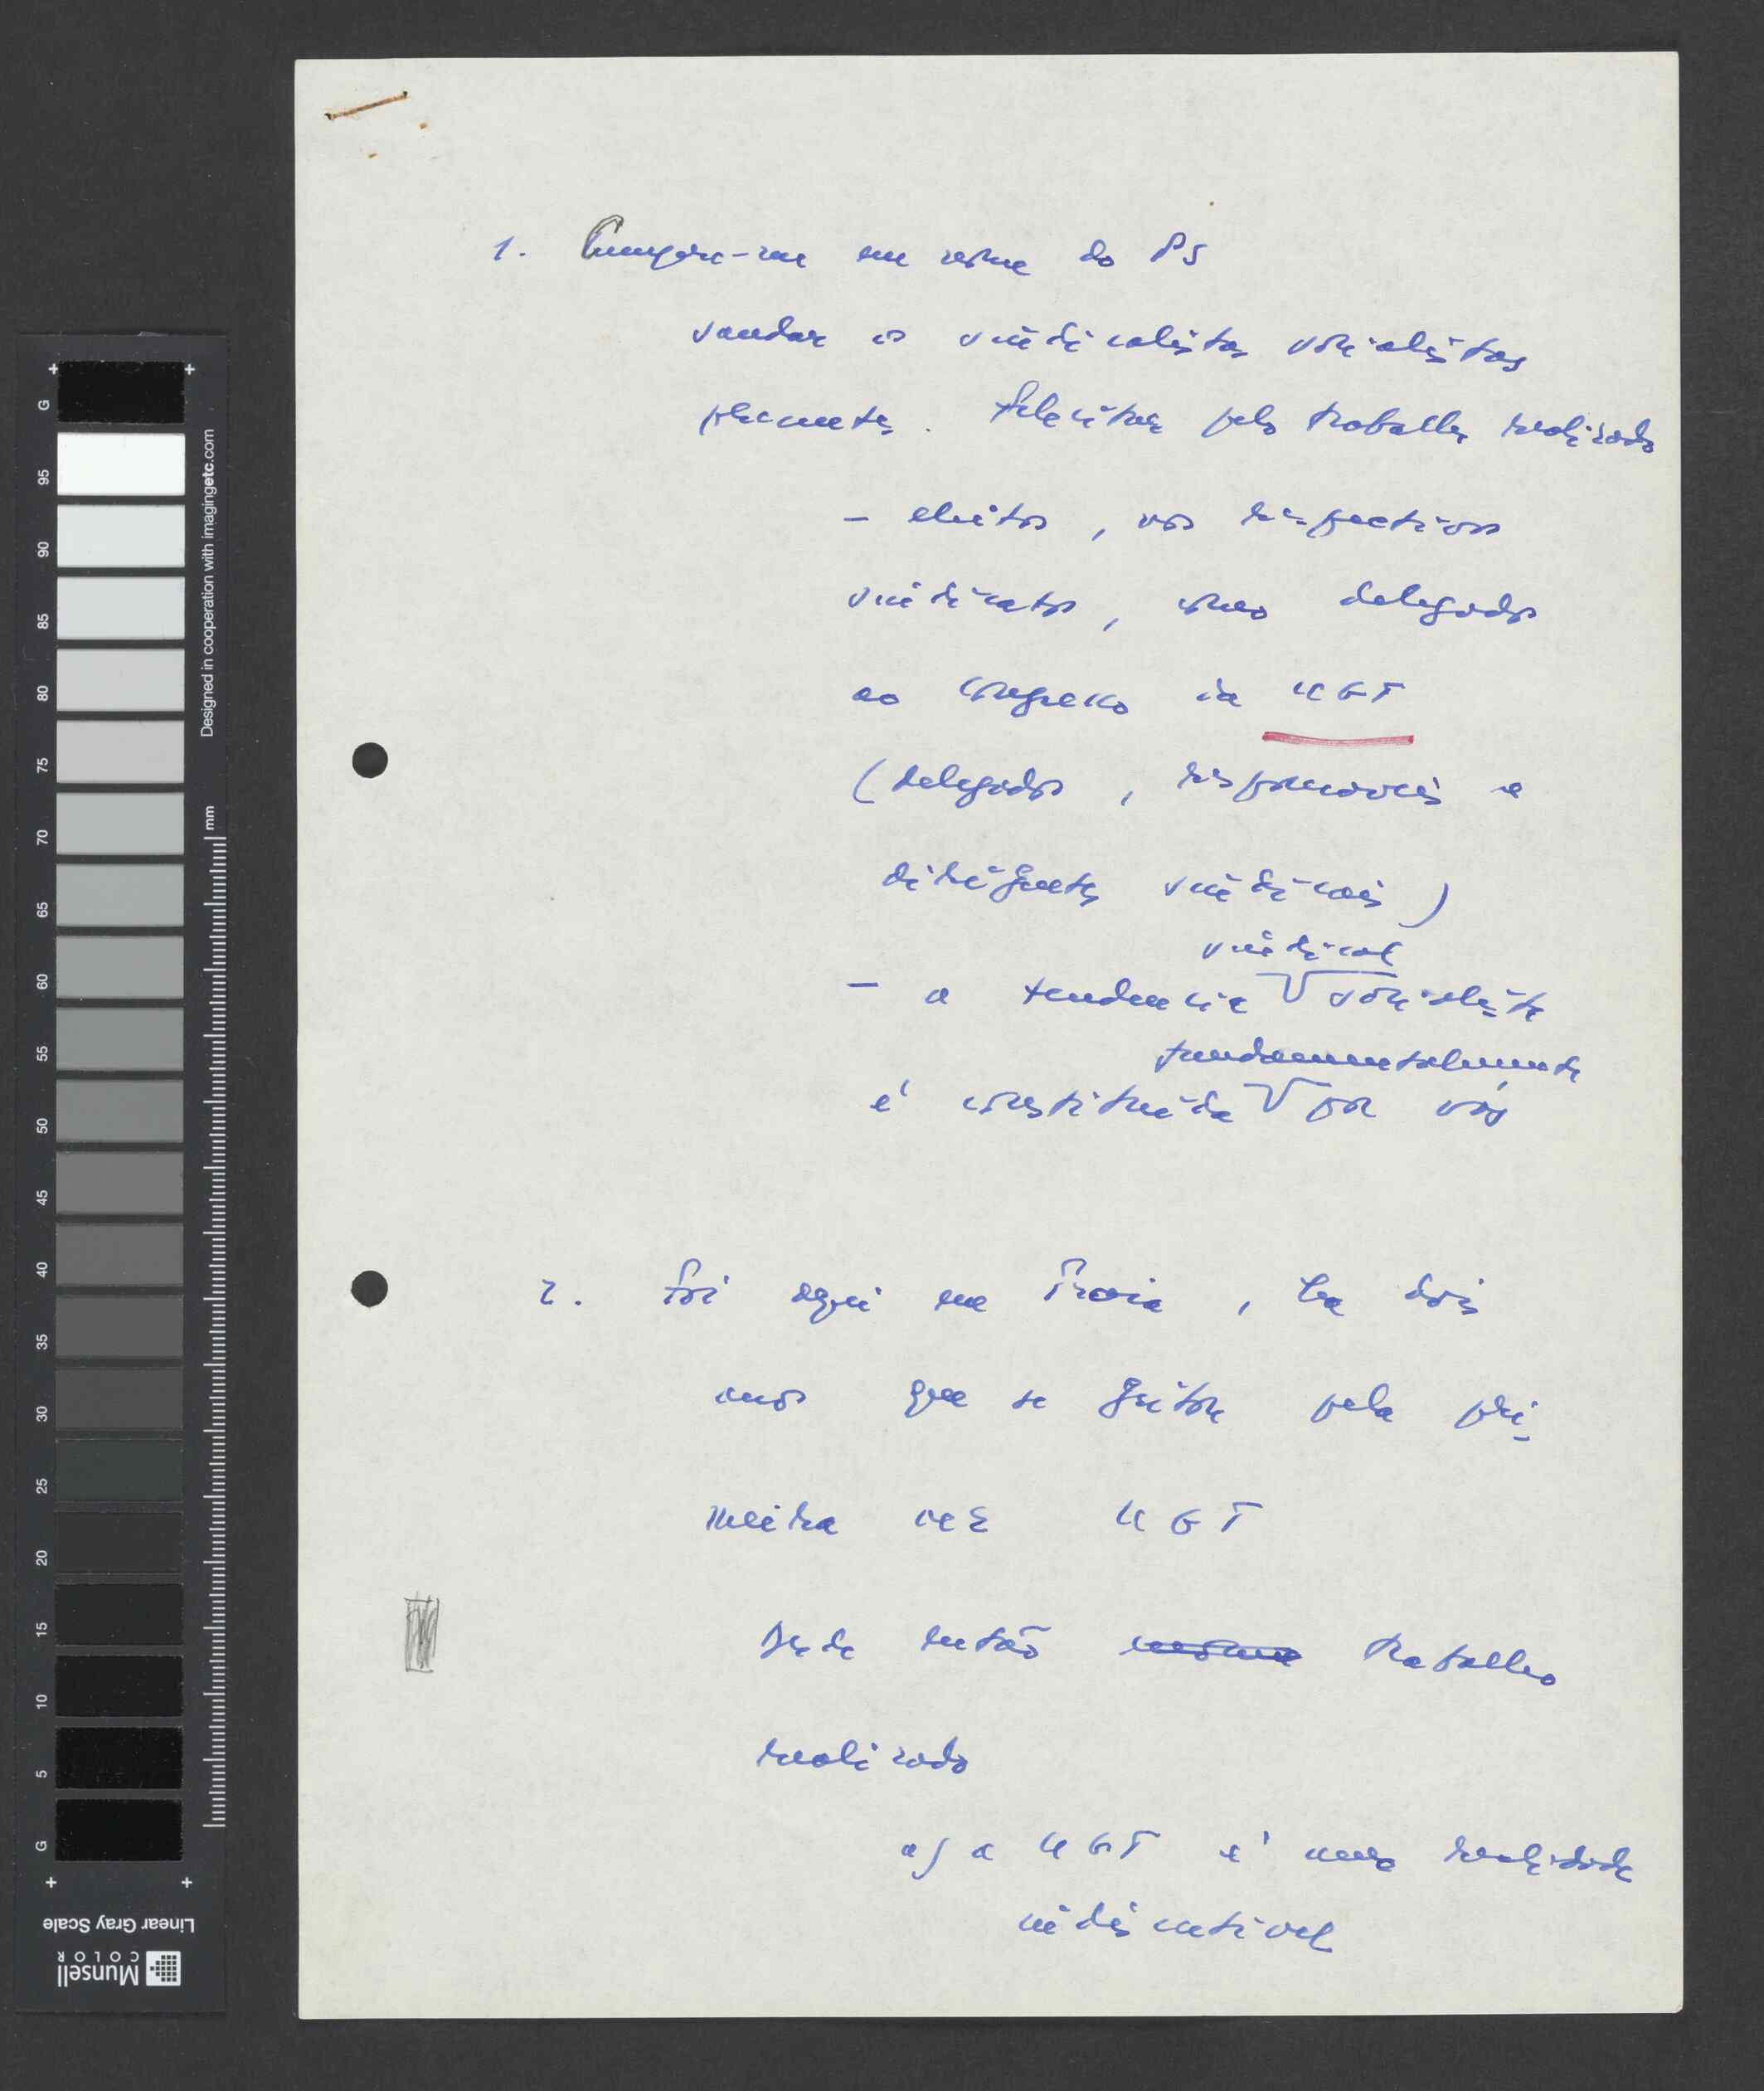 1. Cumpre-me em nome do PS
saudar os sindicalistas socialistas
presentes. Felicitar pelo trabalho realizado
- eleitos, nos respectivos
sindicatos, como delegados
ao Congresso da UGT
(delegados, responsáveis e
dirigentes sindicais)
sindical
- a tendencia socialista
fundamentalmente
é constituida por vós
2. Foi aqui em Troia, ha dois
anos que se gritou pela pri-
meira vez UGT
Desde então trabalho
realizado
a) a UGT é uma realidade
indiscutivel
G
95
90
85
80
75
70
65
60
55
50
45
40
35
30
25
20
15
10
5
G
mm
Designed in cooperation with imagingetc.com
Linear Gray Scale
Munsell
COLOR